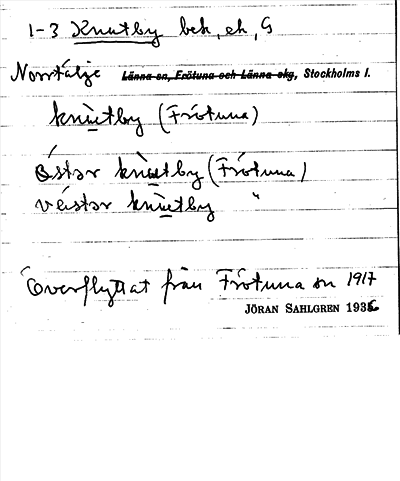 1-3 Knutby beh, eh, G
Norrtälje Länna sn, Frötuna och Länna skg, Stockholms l.
knùtby (Frötuna)
ö́stər knùtby (Frötuna)
vä́stər knùtby "
Överflyttat från Frötuna sn 1917
JÖRAN SAHLGREN 1936